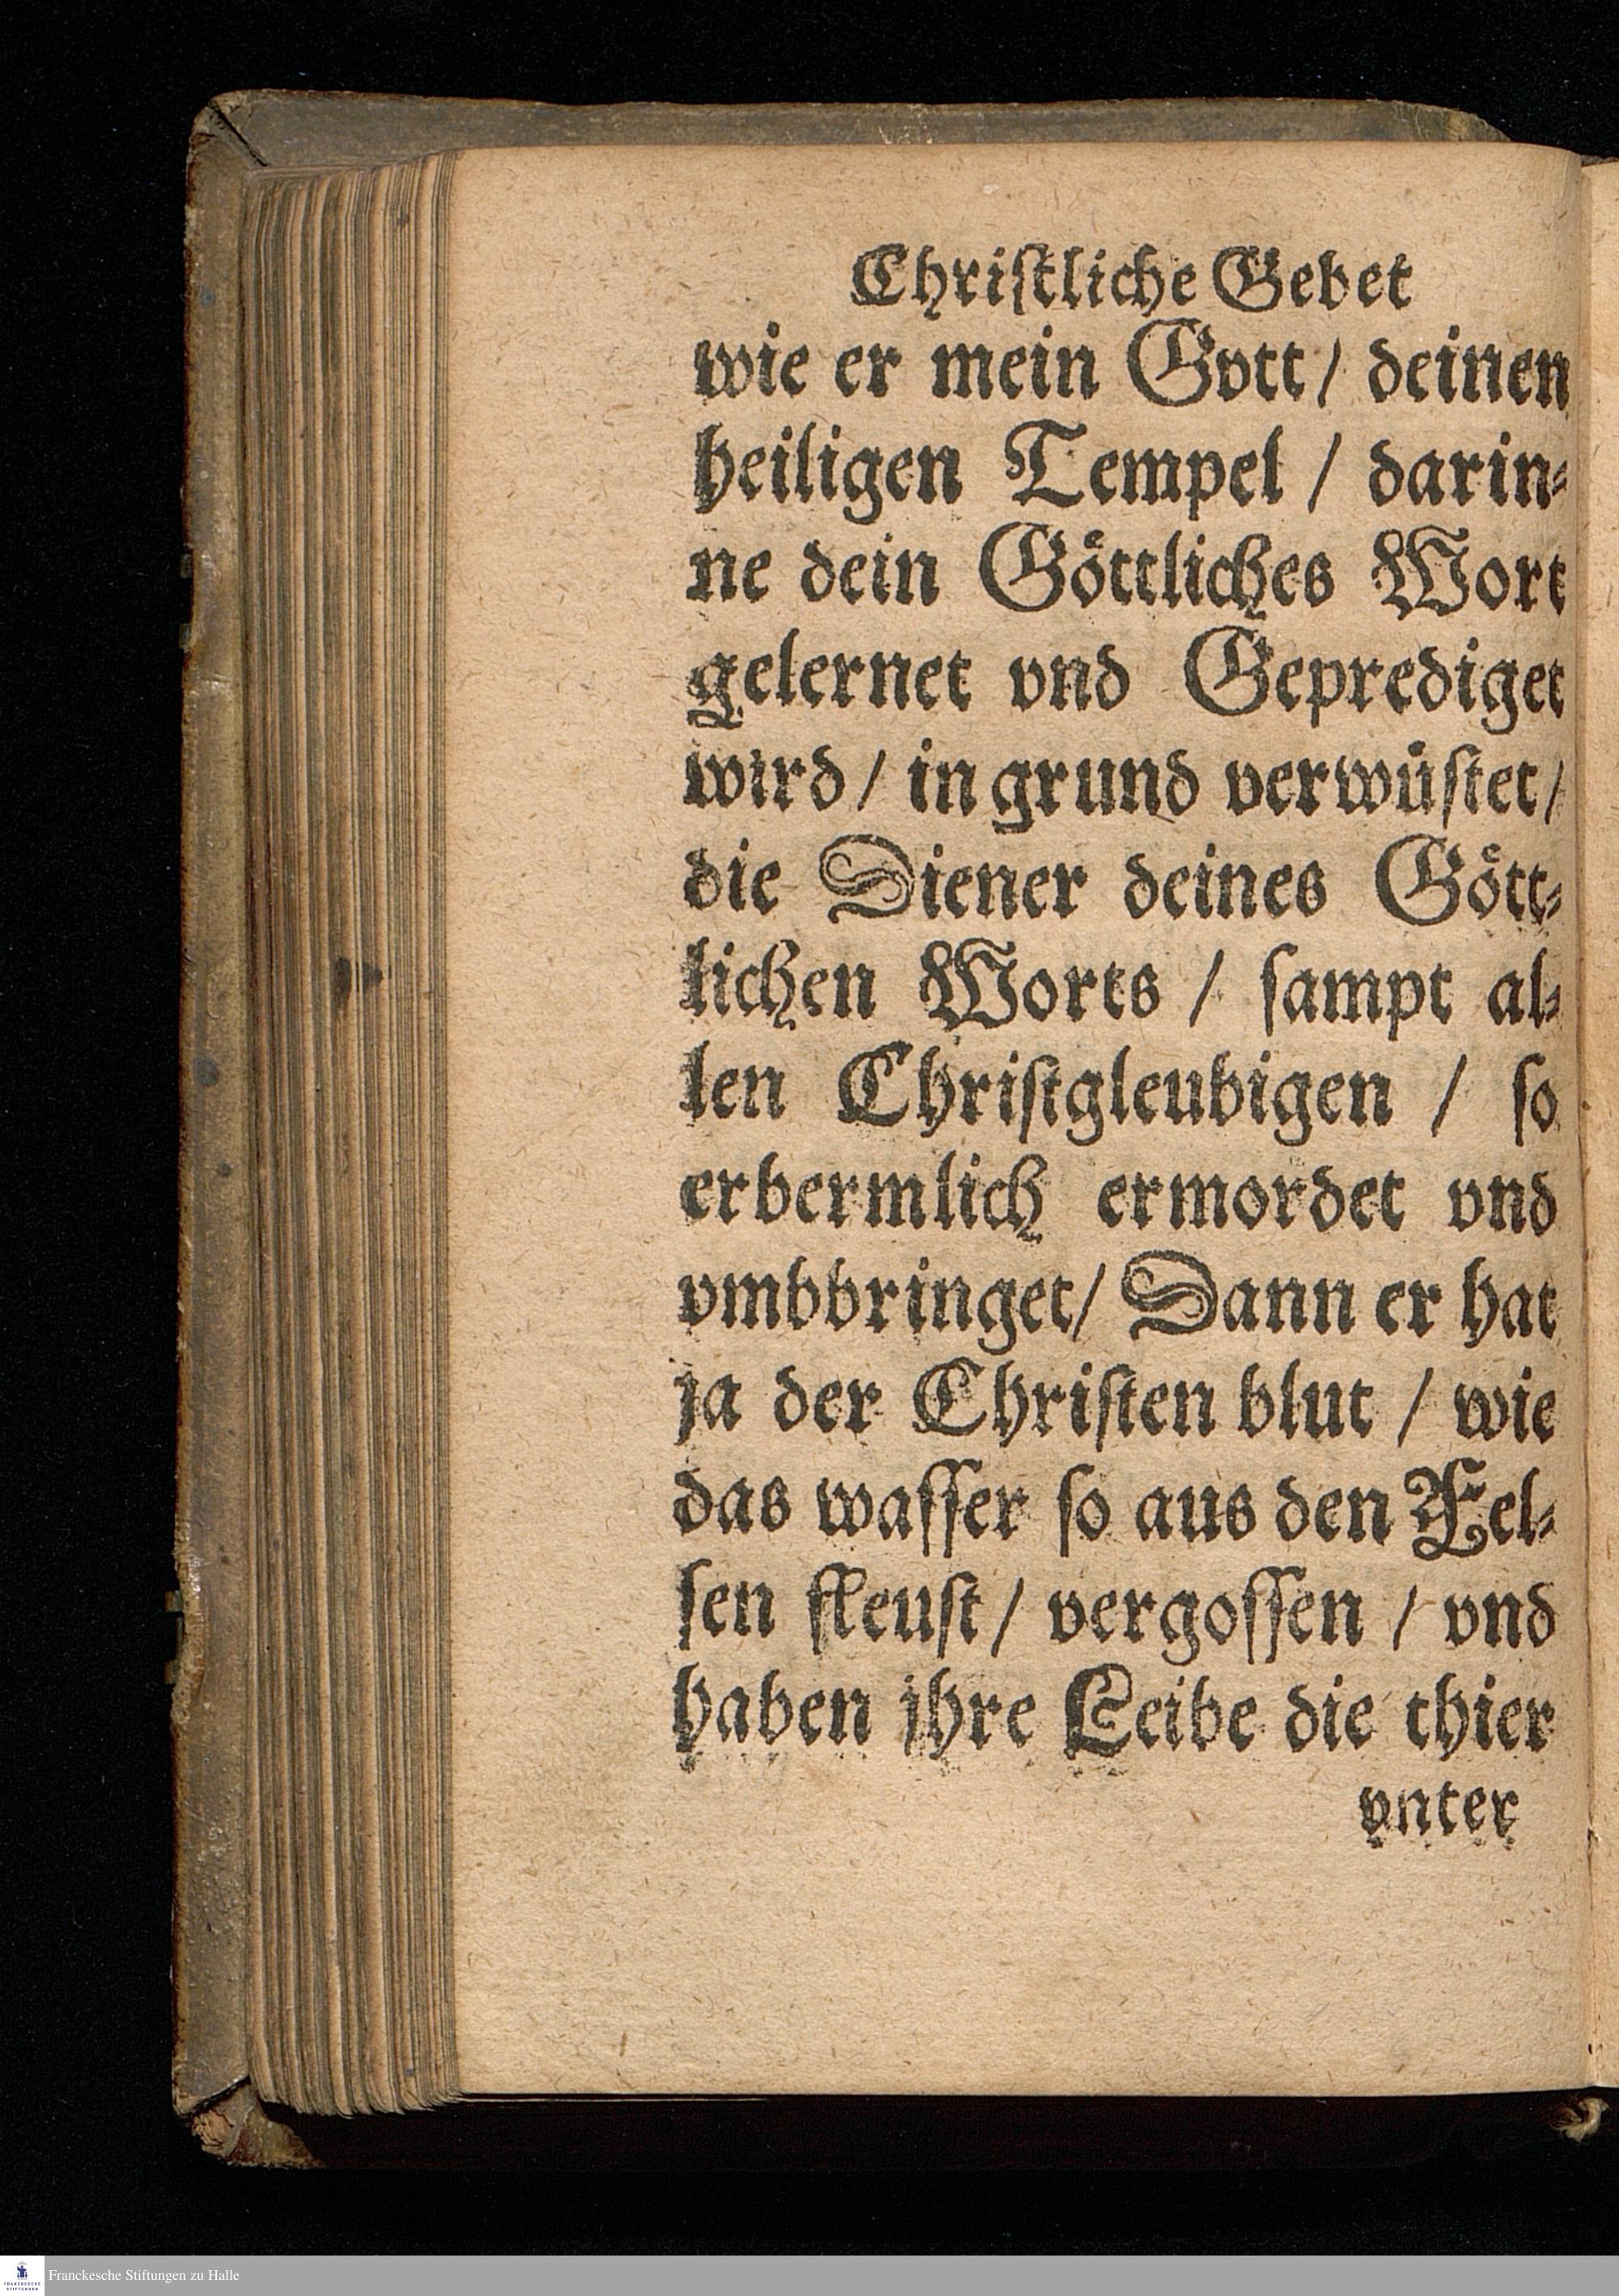 Christliche Gebet
wie er mein Gott / deinen
heiligen Tempel / darin⸗
ne dein Göttliches Wort
gelernet vnd Geprediget
wird / in grund verwüstet /
die Diener deines Gött⸗
lichen Worts / sampt al⸗
len Christgleubigen / so
erbermlich ermordet vnd
vmbbringet / Dann er hat
ja der Christen blut / wie
das wasser so aus den Fel⸗
sen fleust / vergossen / vnd
haben jhre Leibe die thier
vnter
FRANCKESCHE
STIFTUNGEN
Franckesche Stiftungen zu Halle